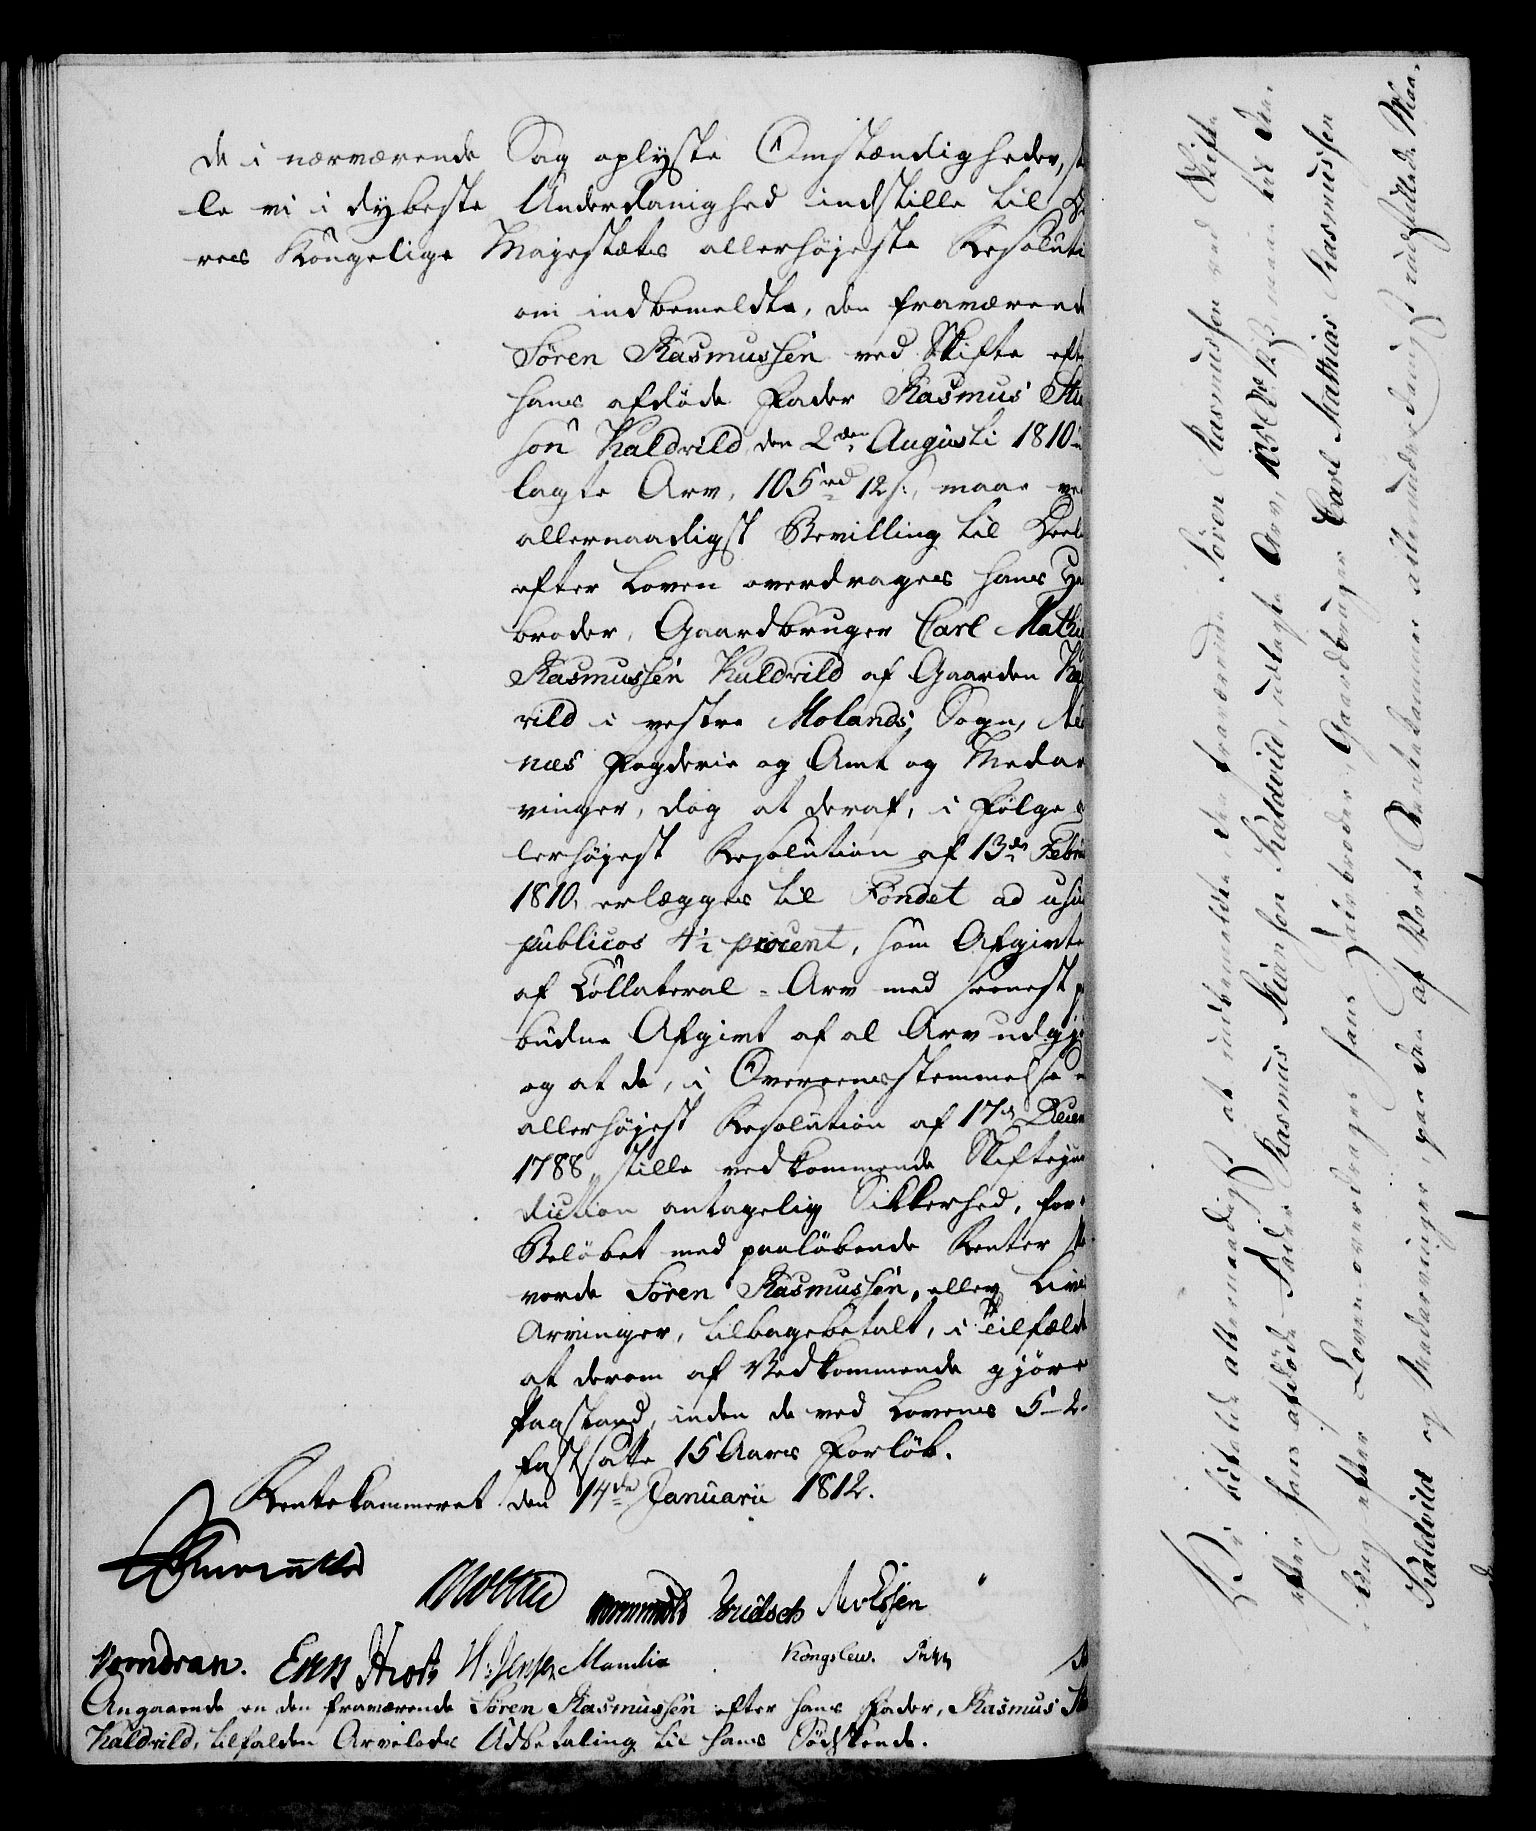 de i nærværende Sag oplyste Omstændigheder, sk
le vi i dybeste Underdanighed indstille til De
res Kongelige Majestæts allerhøjeste Resoluti
om indbemeldte, den fraværende
Søren Rasmussen ved Skifte efte
hans afdøde Fader Rasmus Stia
son Kaldvild den 2den Augusti 1810
lagte Arv, 105 rd 12 s:, maae ved
allernaadigst Bevilling til Deel
efter Loven overdrages hans
broder, Gaardbruger Carl Mathia
Rasmussen Kaldvild af Gaarden Ka
vild i vestre Molands Sogn, Ned
næs Fogderie og Amt og Medar
vinger, dog at deraf, i Følge
lerhøjest Resolution af 13de Febru
1810, erlægges til Fondet ad usus
publicos 4½ procent, som Afgivte
af Collateral-Arv med seenest p
budne Afgivt af al Arv udgjø
og at de, i Overeensstemmelse
allerhøjest Resolution af 17de Decem
1788, stille vedkommende Skiftejuris
diction antagelig Sikkerhed, for
Beløbet med paaløbende Renter
vorde Søren Rasmussen, eller Livs
Arvinger, tilbagebetalt, i Tilfælde
at derom af Vedkommende gjøres
Paastand, inden de ved Lovens 5-2-
fastsatte 15 Aars Forløb.
Rentekammeret den 14de Januarii 1812.
Vormdran.
Kongslew.
Angaaende en den fraværende Søren Rasmussen efter hans Fader, Rasmus
Kaldvild, tilfalden Arvelods Udbetaling til hans Sødskende.
Vi bifalde allernaadigst at indbemeldte, den fraværende Søren Rasmussen ved Skifte
efter hans afdøde Fader Rasmus Stianson Kaldvild, udlagte Arv, 105 Rd 12 s, maae til Dee
ling efter Loven overdrages hans Huusbroder, Gaardbruger Carl Mathias Rasmussen
Kaldvild og Medarvinger, paa den af Vort Rentekammer allerunderdanigst indstillede Maa